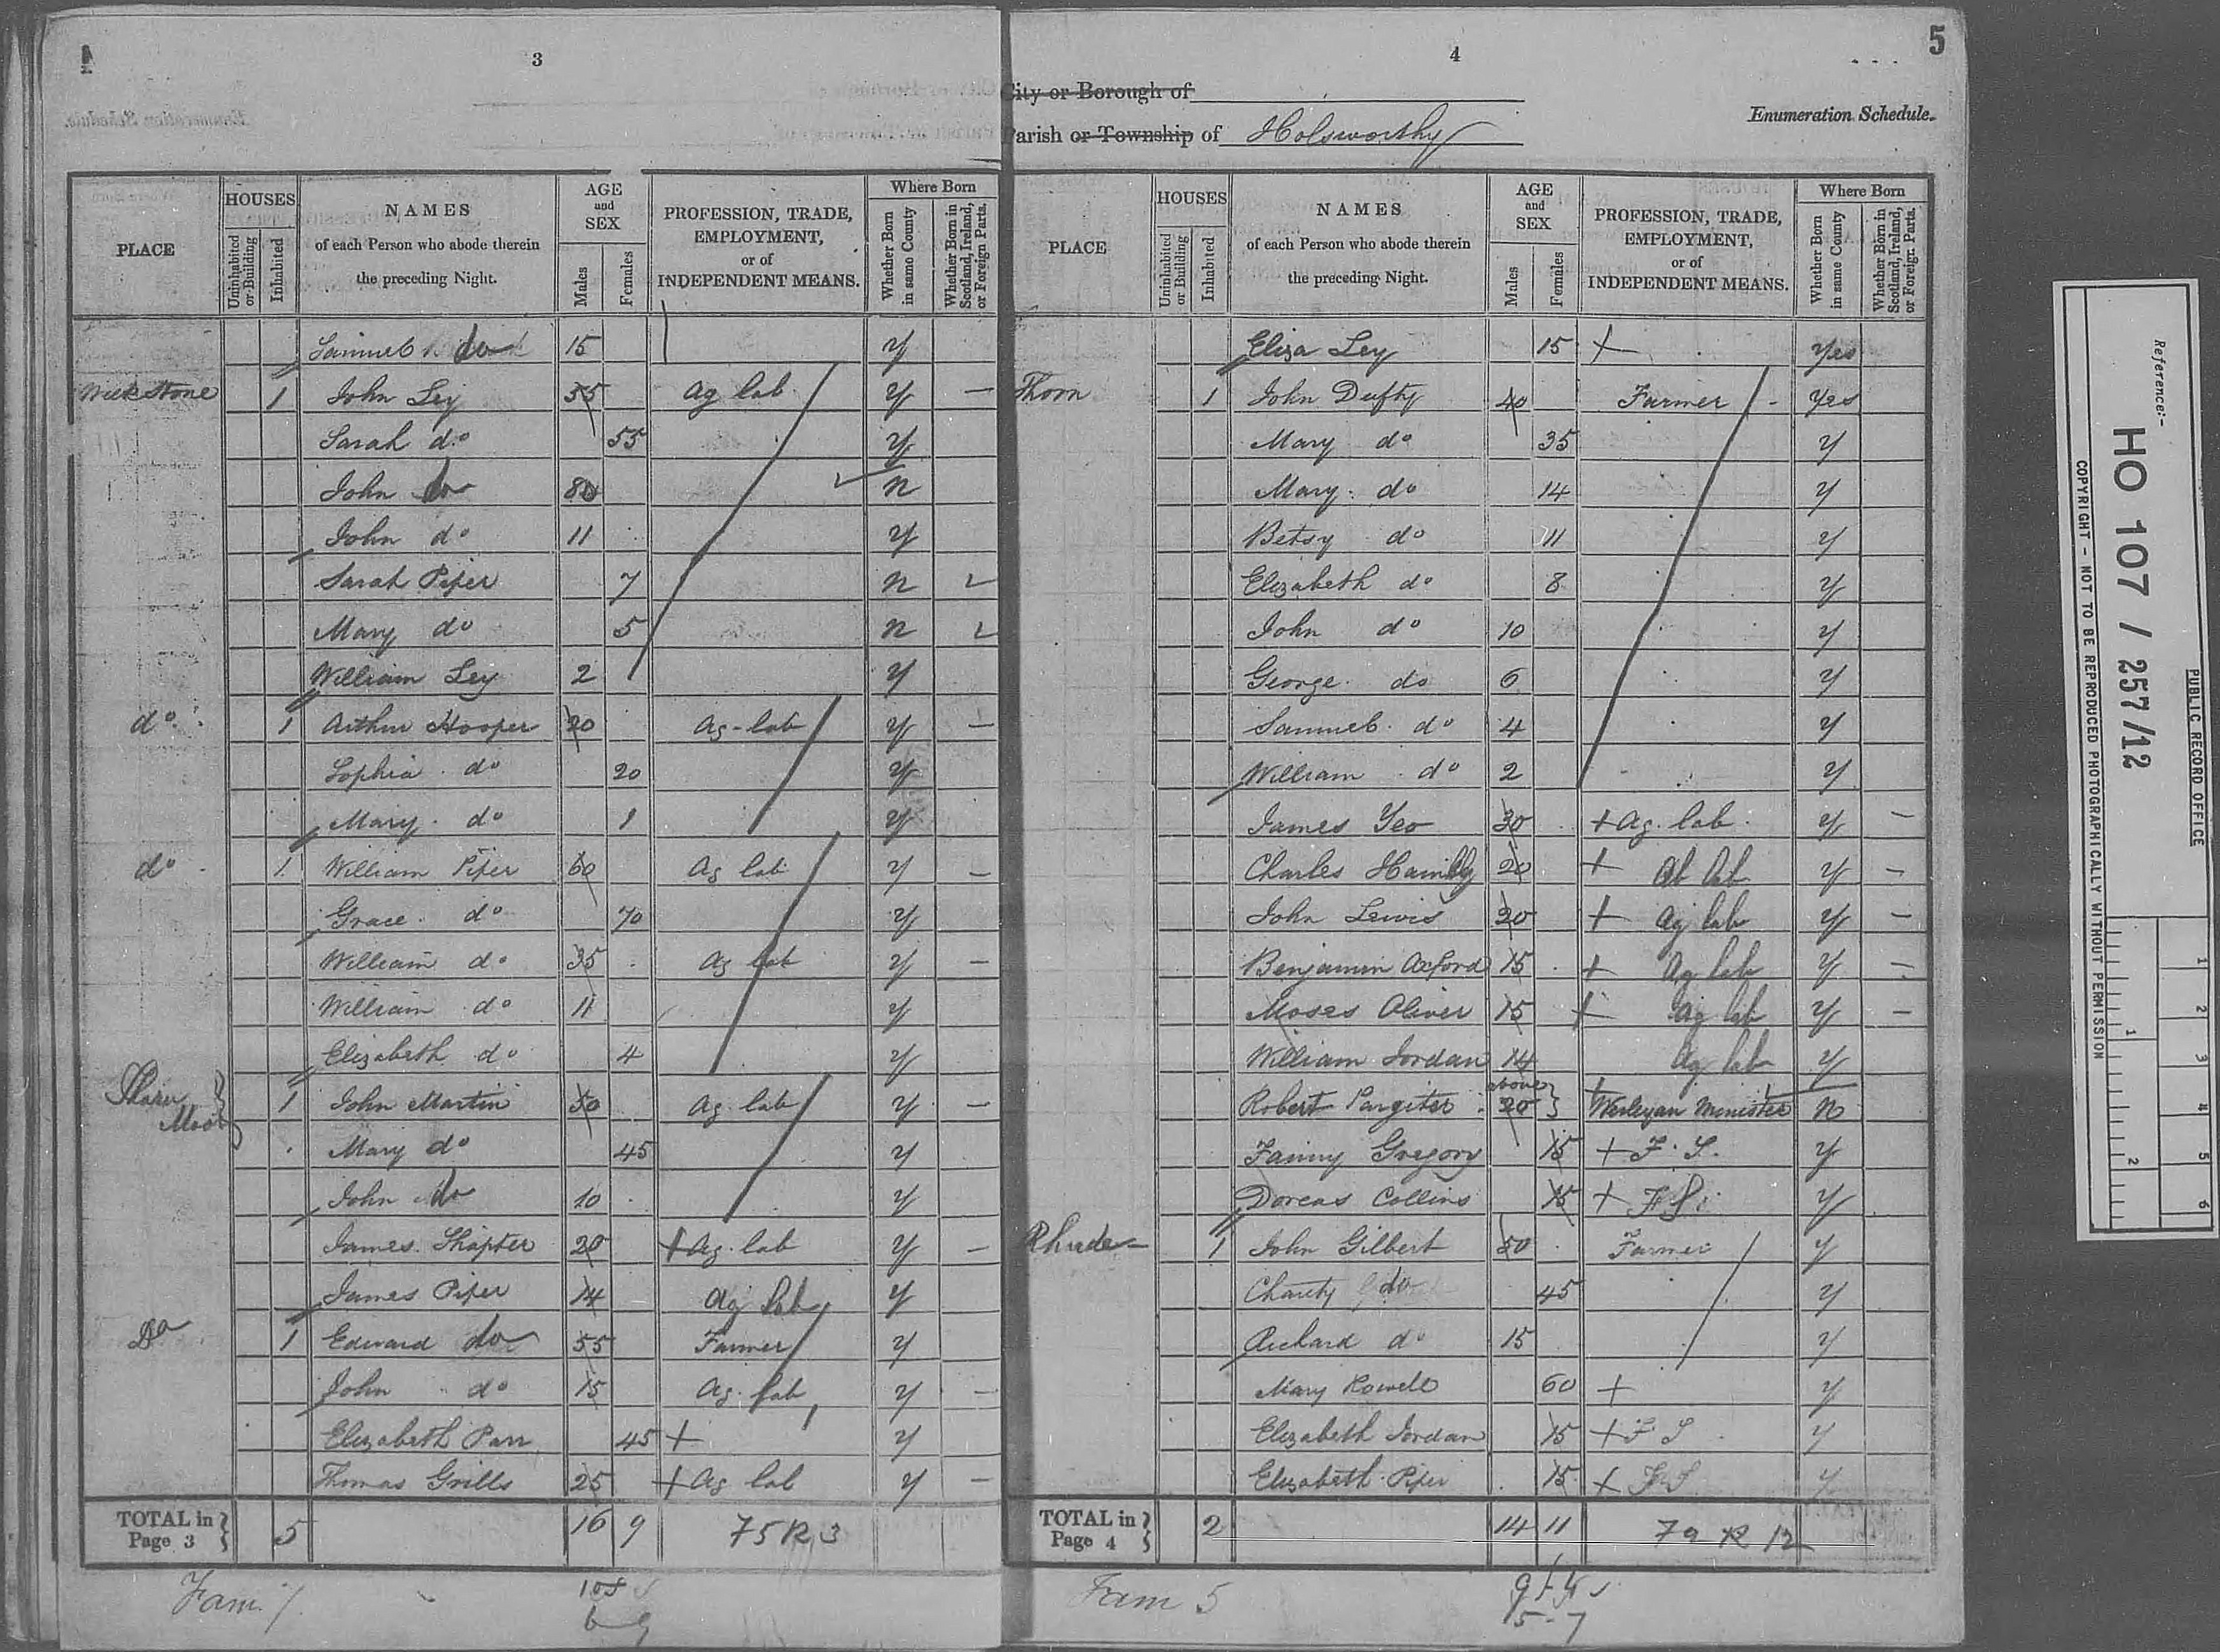 3
PLACE HOUSES Uninhabited or Building Inhabited NAMES of each Person who abode therein the preceding Night. AGE and SEX Males Females PROFESSION, TRADE, EMPLOYMENT, or of INDEPENDENT MEANS. Where Born Whether Born in same County Whether Born in Scotland, Ireland, or Foreign Parts.
Samuel do 15 y
1 John Ley 55 Ag lab y –
Sarah do 55 y
John do 80 n
John do 11 y
Sarah Piper 7 n
Mary do 5 n
William Ley 2 y
do 1 Arthur Hooper 20 Ag-lab y –
Sophia do 20 y
Mary do 1 y
do 1 William Piper 60 Ag lab y –
Grace do 70 y
William do 35 Ag lab y –
William do 11 y
Elizabeth do 4 y
1 John Martin 50 Ag. lab y –
Moor
Mary do 45 y
John do 10 y
James Shapter 20 + Ag. lab y –
James Piper 14 Ag lab y
Do 1 Edward do 55 Farmer y
John do 15 Ag. lab y –
Elizabeth Parr 45 + y
Thomas Grills 25 + Ag lab y –
TOTAL in Page 3 } 5 16 9 75 R 3
Fam 7
6 9
5
4
City or Borough of
Parish or Township of Holsworthy
Enumeration Schedule.
PLACE HOUSES Uninhabited or Building Inhabited NAMES of each Person who abode therein the preceding Night. AGE and SEX Males Females PROFESSION, TRADE, EMPLOYMENT, or of INDEPENDENT MEANS. Where Born Whether Born in same County Whether Born in Scotland, Ireland, or Foreign Parts.
Eliza Ley 15 + Yes
Thorn 1 John Dufty 40 Farmer - Yes
Mary do 35 y
Mary do 14 y
Betsy do 11 y
Elizabeth do 8 y
John do 10 y
George do 6 y
Samuel do 4 y
William do 2 y
James Yeo 30 + Ag. lab y –
Charles 20 + lab y –
John Lewis 20 + Ag lab y –
Benjamin Axford 15 + Ag lab y –
Moses Oliver 15 + Ag lab y –
William Jordan 14 Ag lab y
Robert Pargiter above 20 } Wesleyan Minister n
Fanny Gregory 15 + F. S. y
Dorcas Collins 15 + F S. y
Rhude 1 John Gilbert 50 Farmer y
Charity do 45 y
Richard do 15 y
Mary Rowell 60 + y
Elizabeth Jordan 15 + F S y
Elizabeth Piper 15 + F S y
TOTAL in Page 4 } 2 14 11 79 R 12
Fam 5
5-7
Reference:-
HO 107 / 257/12
COPYRIGHT - NOT TO BE REPRODUCED PHOTOGRAPHICALLY WITHOUT PERMISSION
PUBLIC RECORD OFFICE
1 2 3 4 5 6
1 2